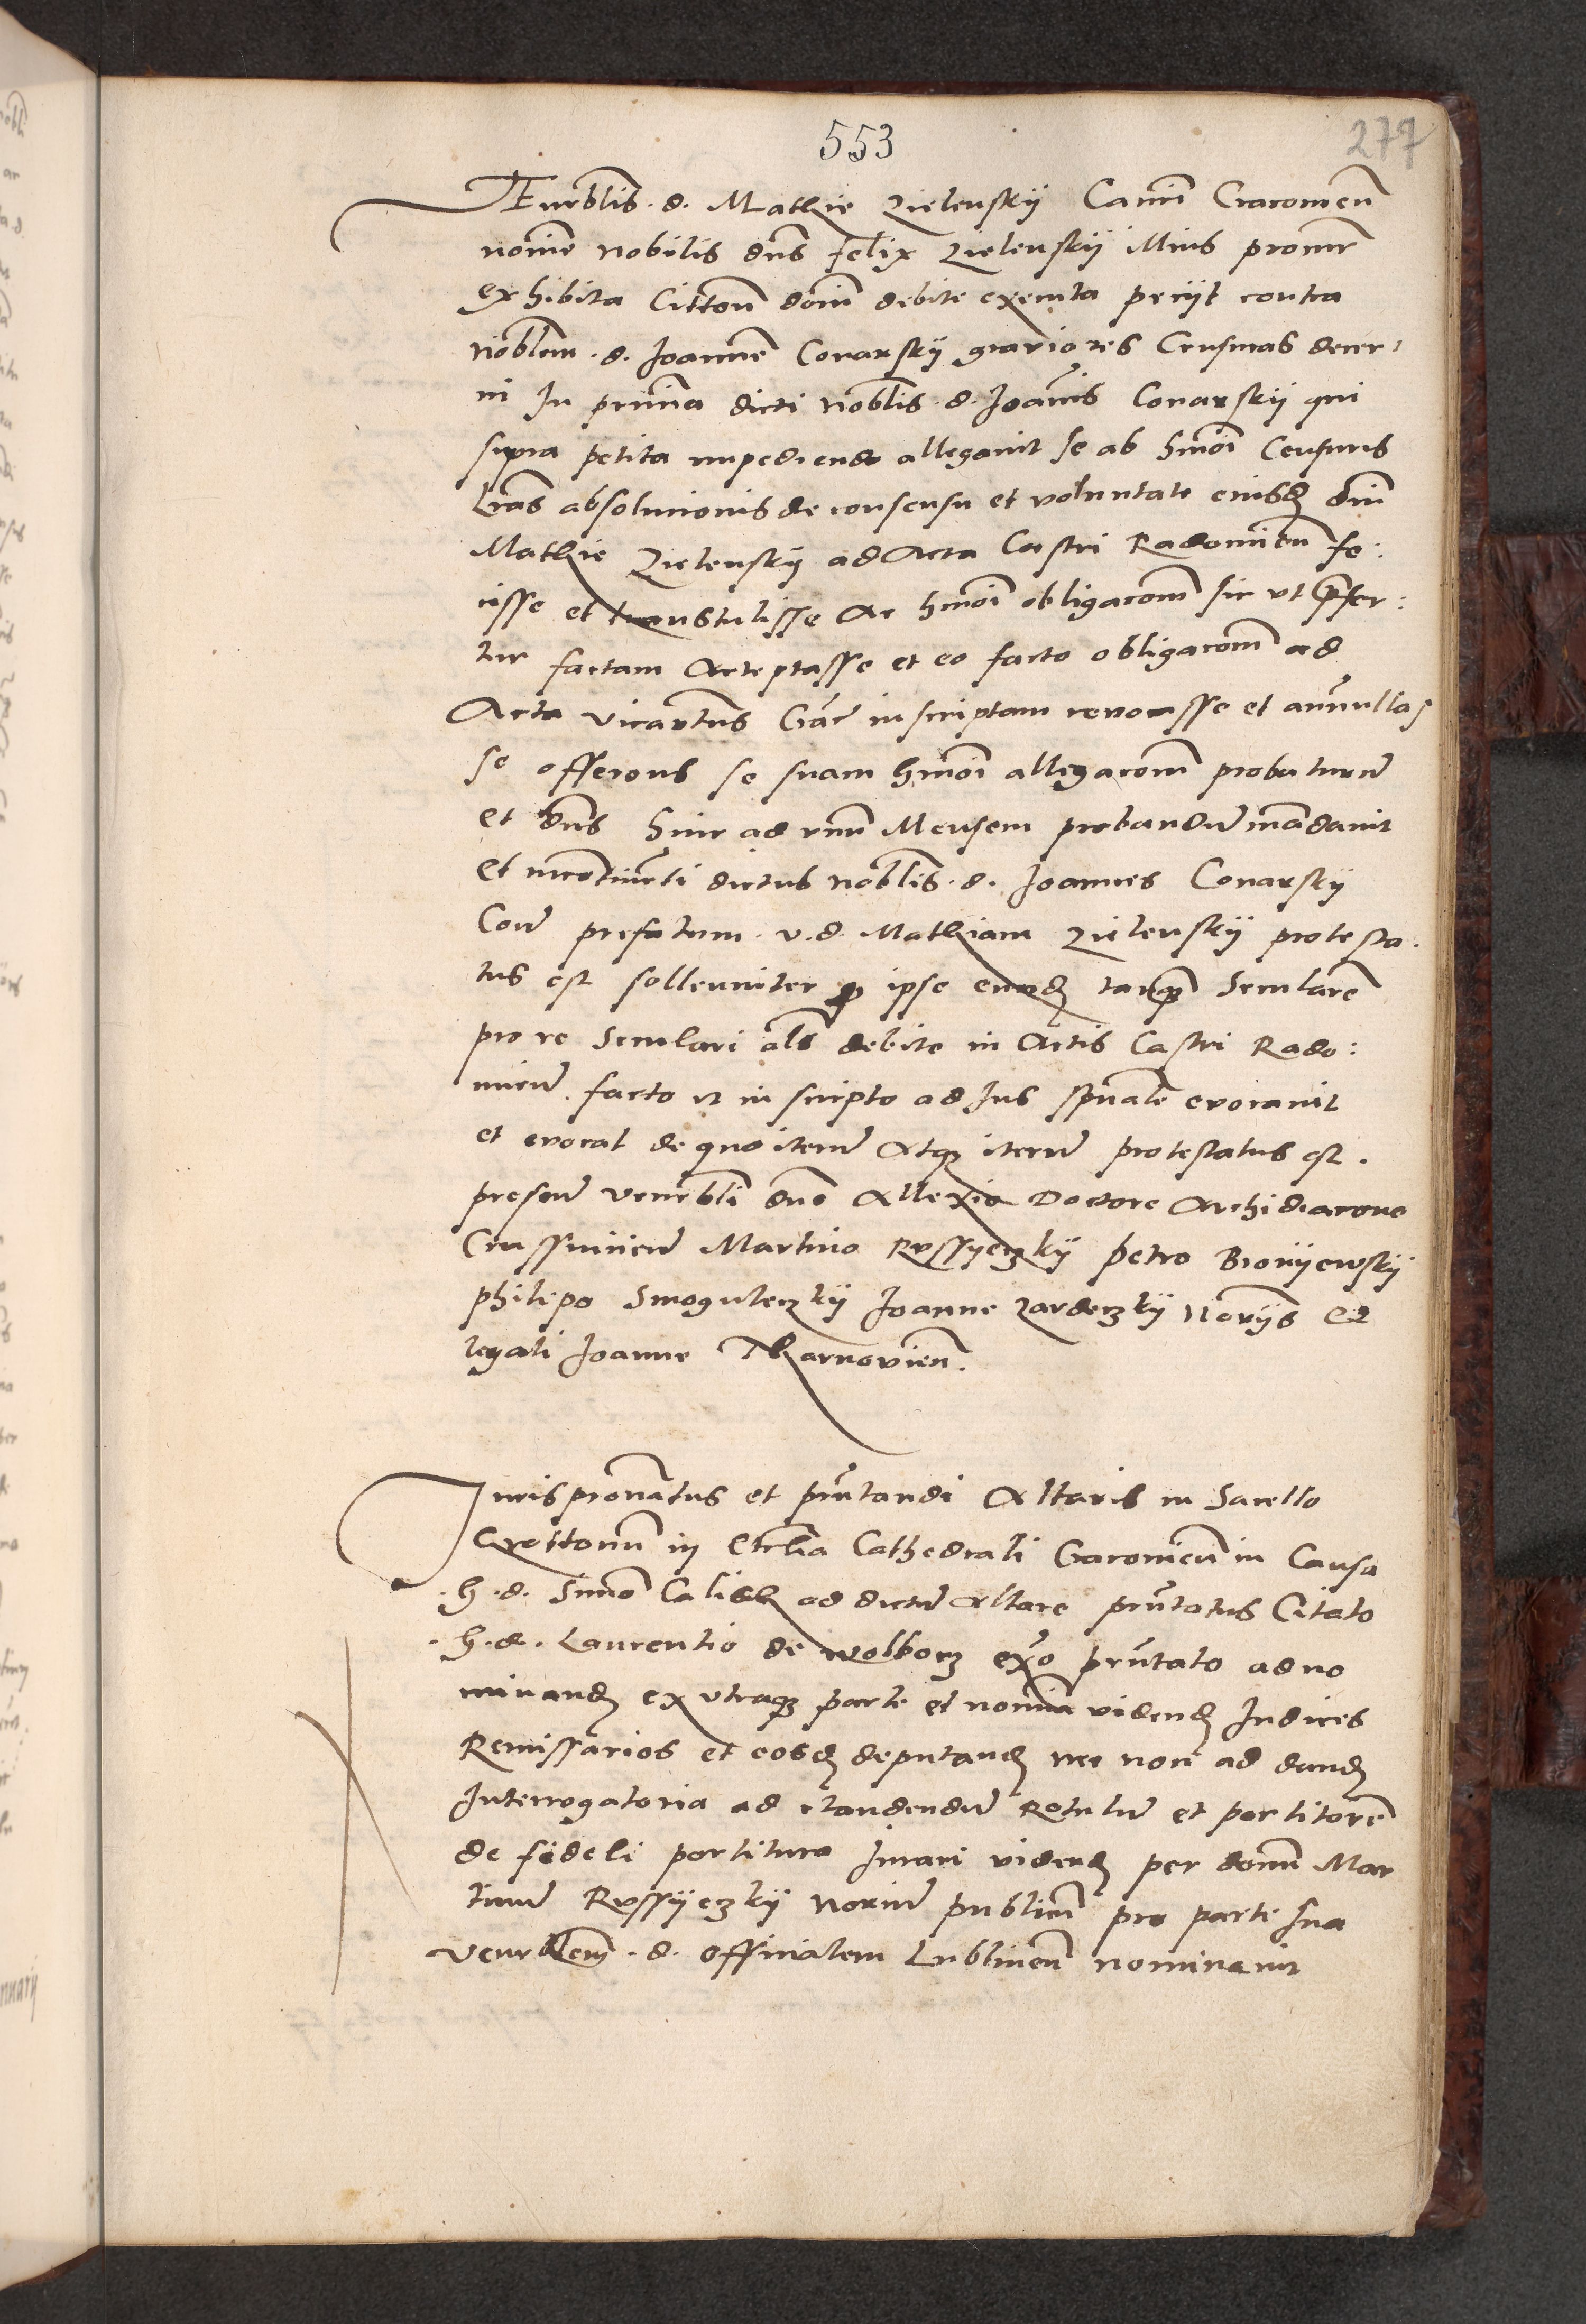 553
277
Venrblis . d . Mathie Zielenskij Canci Cracovien
noie nobilis dns felix Zielenskij illius procur
exhibita Cittoen dnim debite executa petijt contra
Noblem . d . Joannē Conarskij graviores Censuras decer
ni In pntia dicti noblis . d . Joānis Conarskij qui
supra petita impediendo allegavit se ab hmoi Censuris
lras absolucionis de consensu et voluntate eiusd dni
Mathie Zielenskij ad Acta Castri Radomien fe:
cisse et transtulisse Ac hmoi obligacom sic ut prefer:
tur factam Acceptasse et eo facto obligacom ad
Acta vicartus Grac inscriptam revocasse et annullas
se offerens se suam hmoi allegacom probaturū
et dns huic ad unū Mensem probandū mādavit
Et incontinēti dictus noblis . d . Joannes Conarskij
Con prefatum . v . d . Mathiam Zielenskij protesta
tus est sollenniter q ipse eund tanq Secularē
pro re Seculari als debito in Actis Castri Rado:
mien facto et inscripto ad Jus spuale evocavit
et evocat de quo iterū Atq iterū protestatus est .
presen venrbli dno Allexio Doctore Archidiacono
Crussvicien Martino Rossyeczkij petro Bronijewskij
philipo Smoguleczkij Joanne Zardeczkij Norijs et
legali Joanne Tharnovien .
Juris pronatus et pntandi Altaris in Sacello
in Eccla Cathedrali Cracovien in Causa
. h . d . Simo Calisch ad dictū Altare pntatus Citato
. h . d . Laurentio de wolborz exo pntato ad no
minand ex utraq parte et nomia vidend Judices
Remissarios et eosd deputand nec non ad dand
Interrogatoria ad claudendū Rotulū et portitorē
de fideli portitura Jurari vidend per domū Mar
tinū Rossijeczkij Noriū publicū pro parte sua
Venrblem . d . officialem Lublinen nominavit